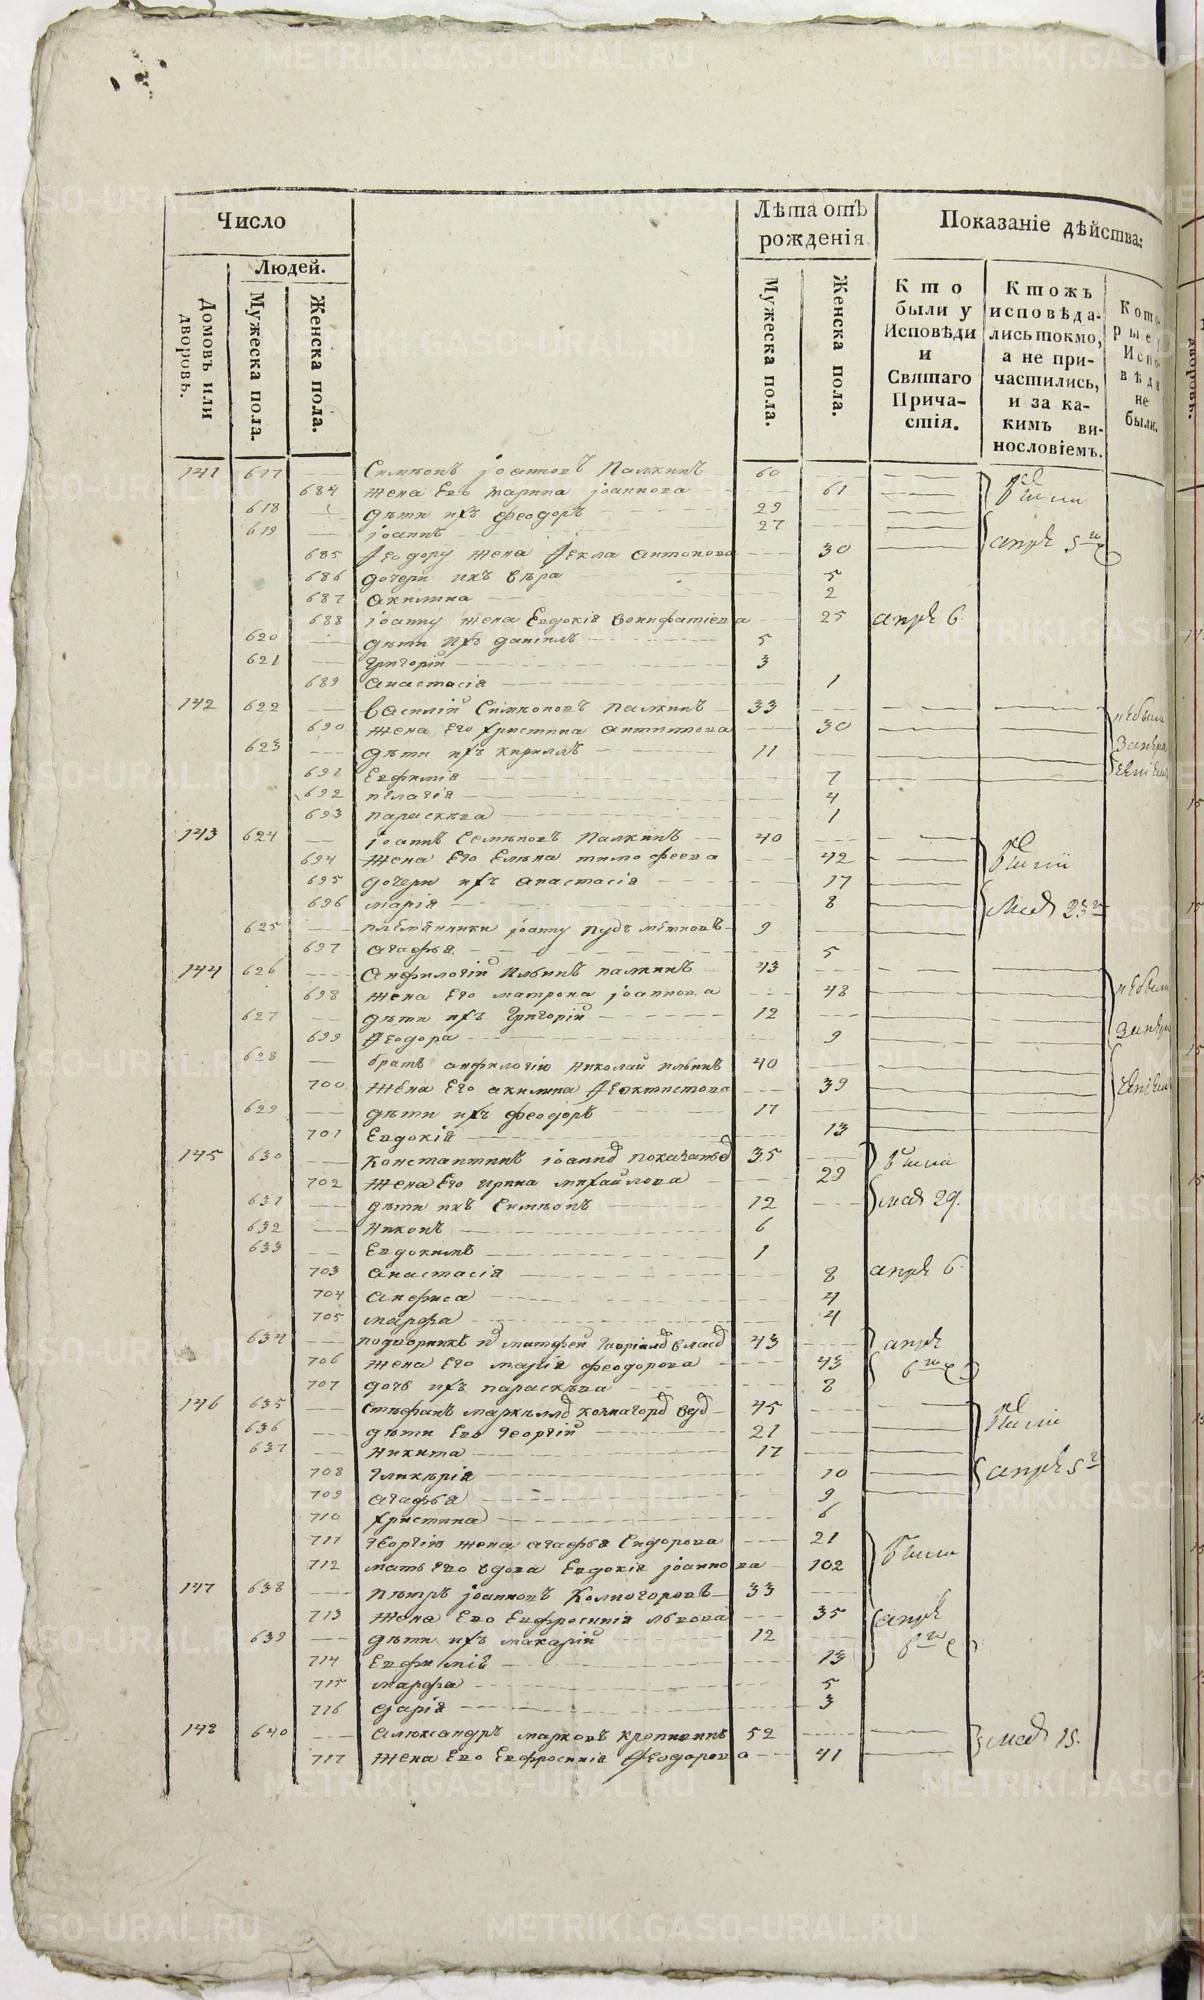 Число
Лѣта отъ рожденія.
Показаніе дѣйства:
Людей.
Домовъ или дворовъ.
Мужеска пола.
Женска пола.
Мужеска пола.
Женска пола.
Кто были у Исповѣди и Святаго Причастія.
Ктожъ исповѣдались токмо, а не причастились, и за какимъ винословіемъ.
Которые Исповѣди не были.
141 617 Симеонъ Іоанновъ Палкинъ 60
684 жена Его марина іоаннова 61 были
618 дѣти ихъ феодоръ 29
619 іоаннъ 27 апрѣ 5го
685 Ѳеодору жена Ѳекла антонова 30
686 дочери ихъ вѣра 5
687 акилина 2
688 іоанну жена Евдокія вонифатіева 25 апрѣ 6
620 дѣти ихъ даніилъ 5
621 григорій 3
689 анастасія 1
142 622 василій Симеоновъ палкинъ 33
690 жена его христина антипова 30
623 дѣти ихъ кириллъ 11
691 Евфимія 7
692 пелагія 4
693 параскева 1
143 624 іоаннъ Семеновъ Палкинъ 40
694 жена Его Елена тимофеева 42 были
695 дочери ихъ анастасія 17
696 марія 8 мая 23го
625 племянники іоанну 9
697 агафья 5
144 626 Анфилогій Ильинъ палкинъ 43
698 жена Его матрона іоаннова 48
627 дѣти ихъ Григорій 12
699 Ѳеодора 9
628 братъ анфилогію николай ильинъ 40
700 жена Его акилина Ѳеоктистова 39
629 дѣти ихъ феодоръ 17
701 Евдокія 13
145 630 Константинъ 35 были
702 жена Его Ирина михайлова 29
631 дѣти ихъ Симеонъ 12 мая 29.
632 никонъ 6
633 Евдокимъ 1
703 анастасія 8 апрѣ 6
704 анфиса 4
705 марфа 4
634 матфей 43 апрѣ
706 жена Его марія феодорова 43 6го
707 дочь ихъ параскева 8
146 635 Стефанъ 45
636 дѣти Его Георгій 21 были
637 никита 17
708 Гликерія 10 апрѣ 5го
709 агафья 9
710 христина 6
711 Георгію жена агафья Сидорова 21
712 мать Его вдова Евдокія іоаннова 102 были
147 638 Петръ іоанновъ Колмогоровъ 33
713 жена Его Евфросинія львова 35 апрѣ
639 дѣти ихъ макарій 12 6го
714 Евфимія 13
715 марфа 5
716 дарія 3
148 640 Александръ марковъ 52 мая 15.
717 жена Его Евфросинія Ѳеодорова 41
METRIKI.GASO-URAL.RU